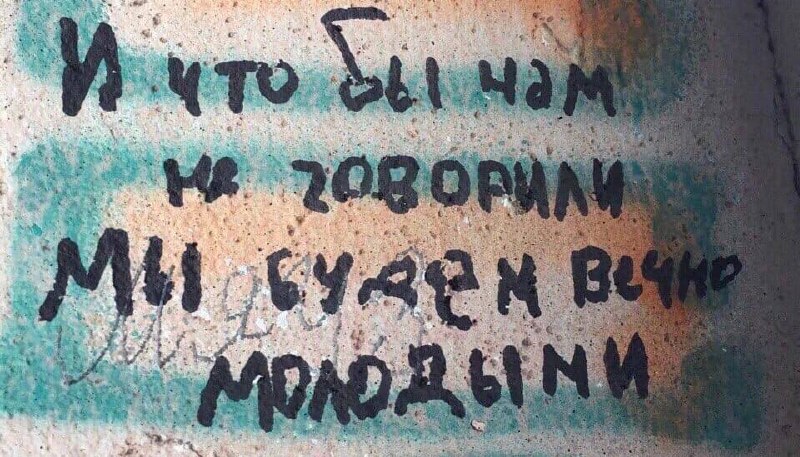 И что бы нам
не говорили
Мы будем вечно
молодыми